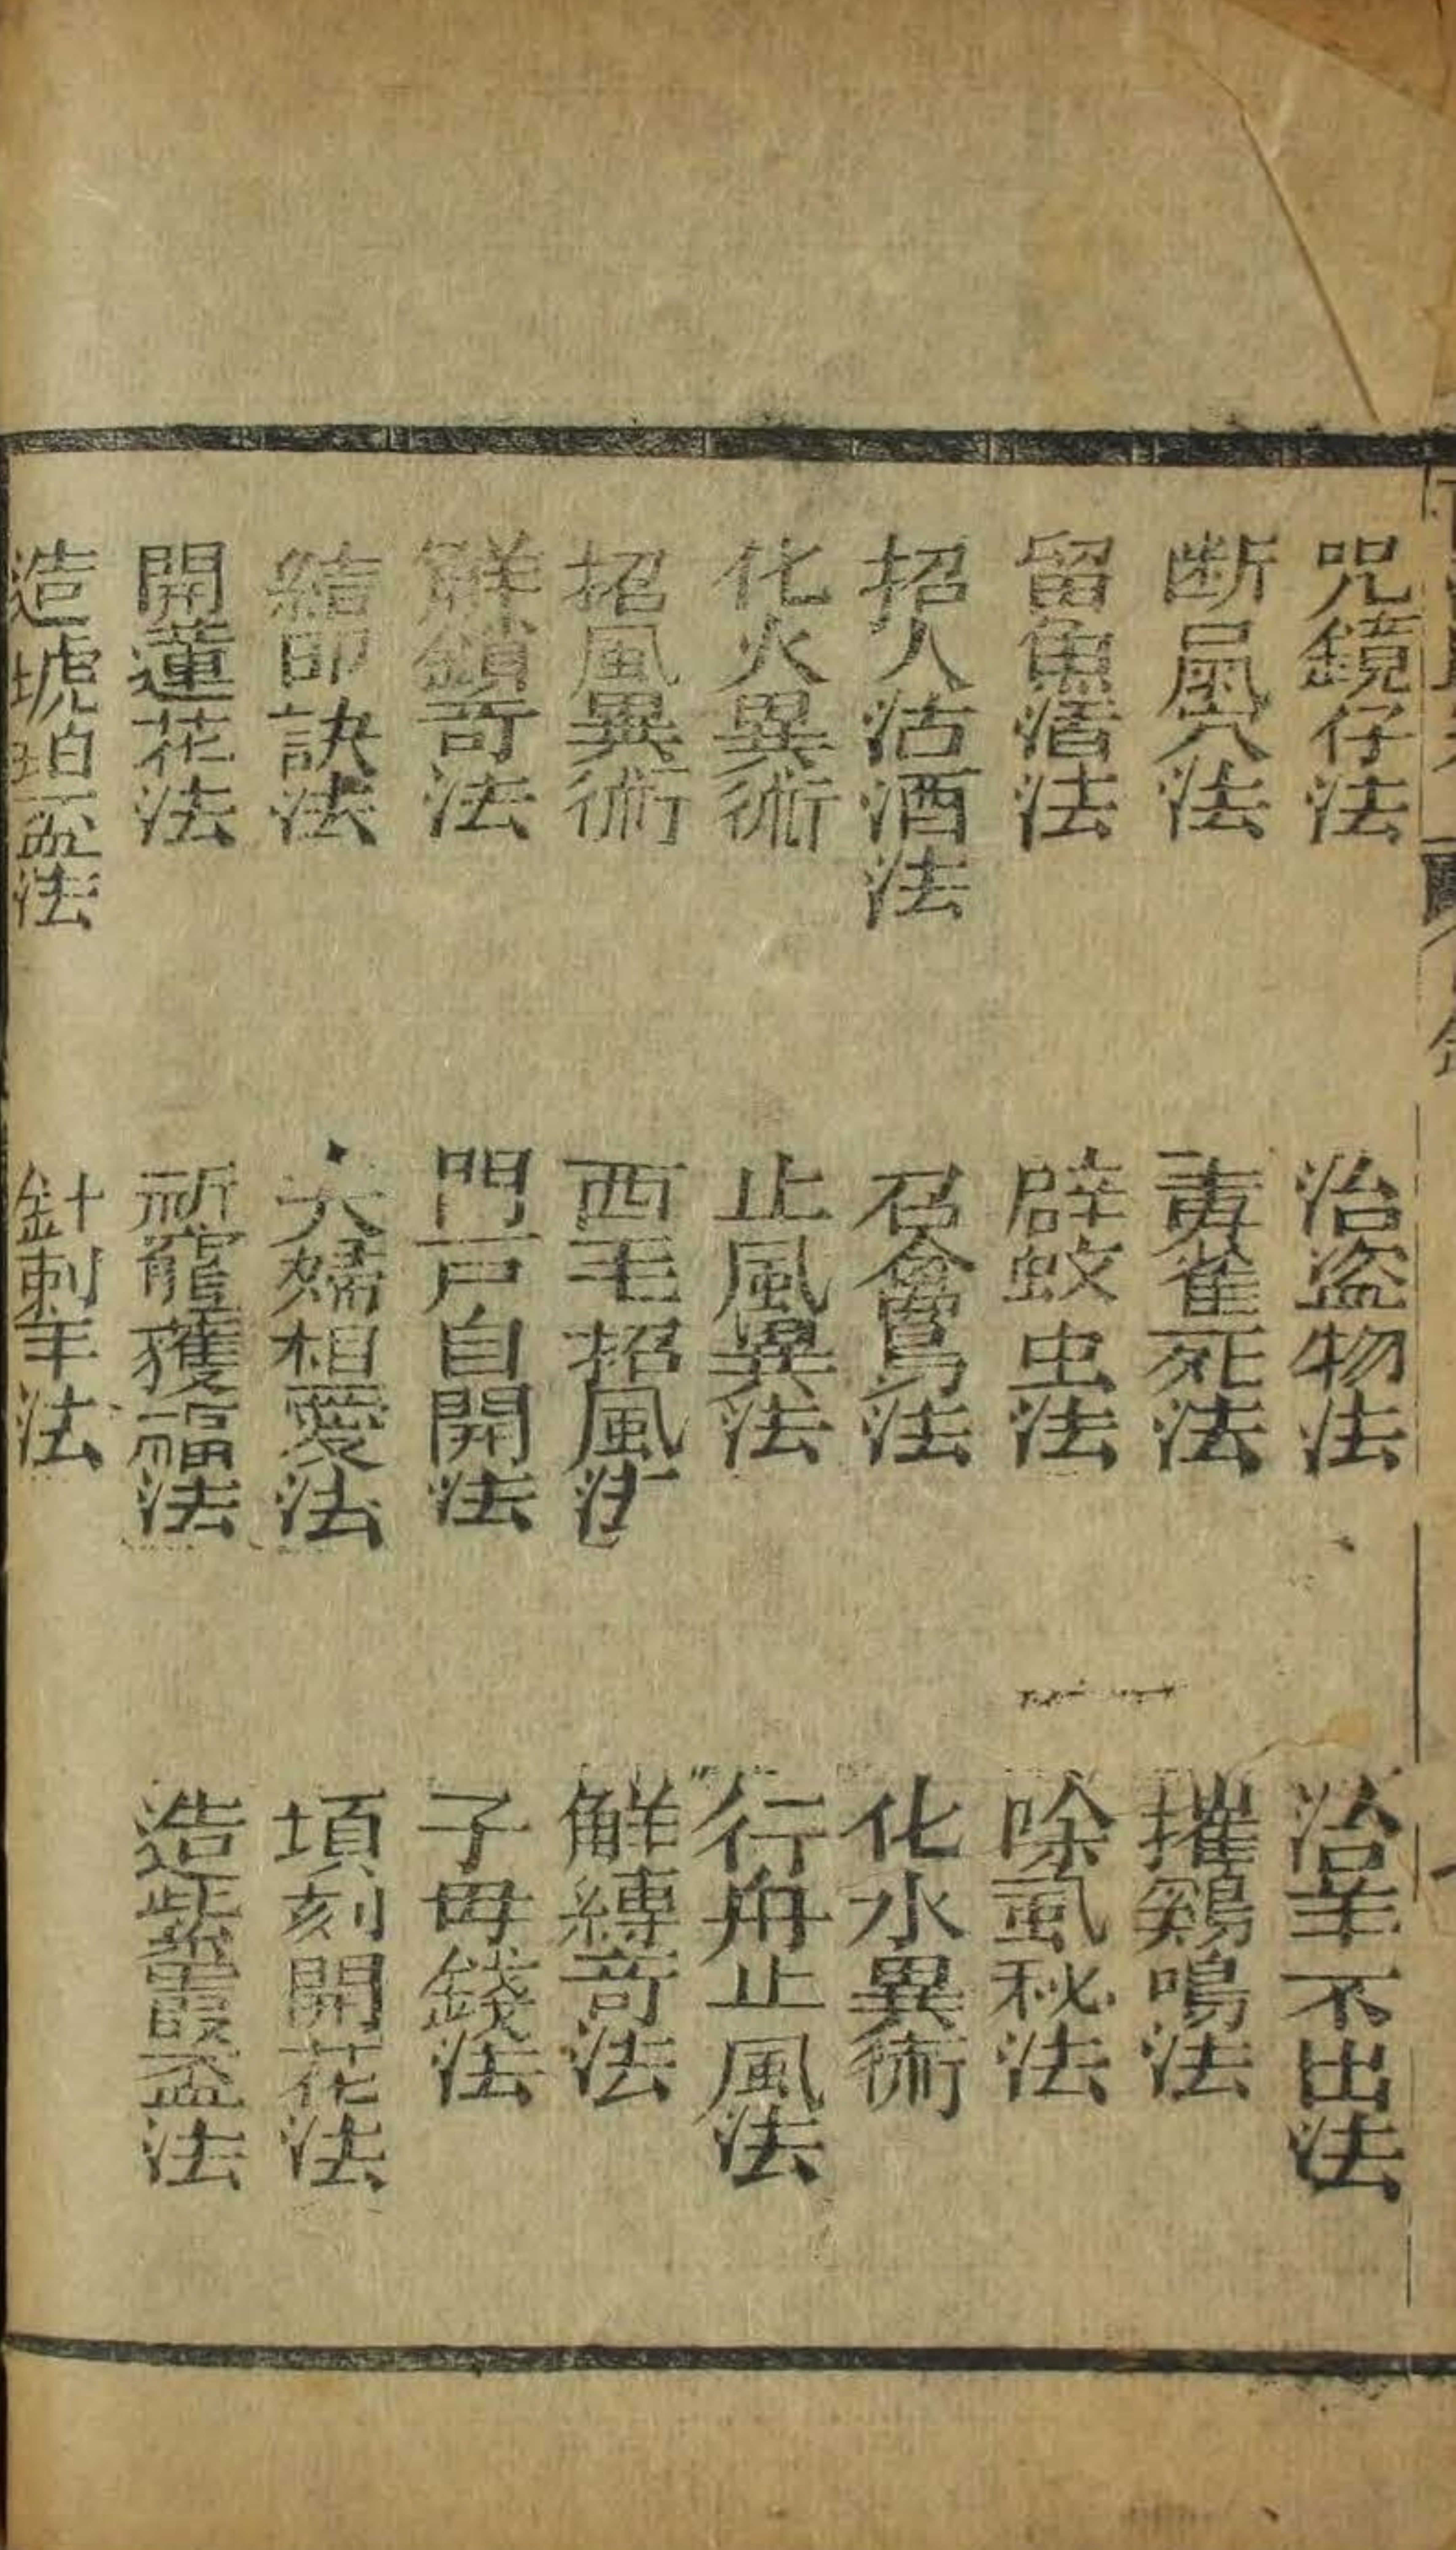 咒鏡仔法
治盜物法
治羊不出法
断鳳穴法
毒雀死法
摧鷄鳴法
留魚湣法
辟蚊虫法
除虱秘法
招人沽酒法
召禽鳥法
化水異術
化火異術
止風異法
行舟止風法
招風異術
西毛招風法
觧縳竒法
觧鎖竒法
門戸自開法
子毋錢法
結印訣法
夫婦相愛法
頃刻開花法
開蓮花法
祈竈獲福法
造紫霞盃法
造琥珀盃法
針刺羊法